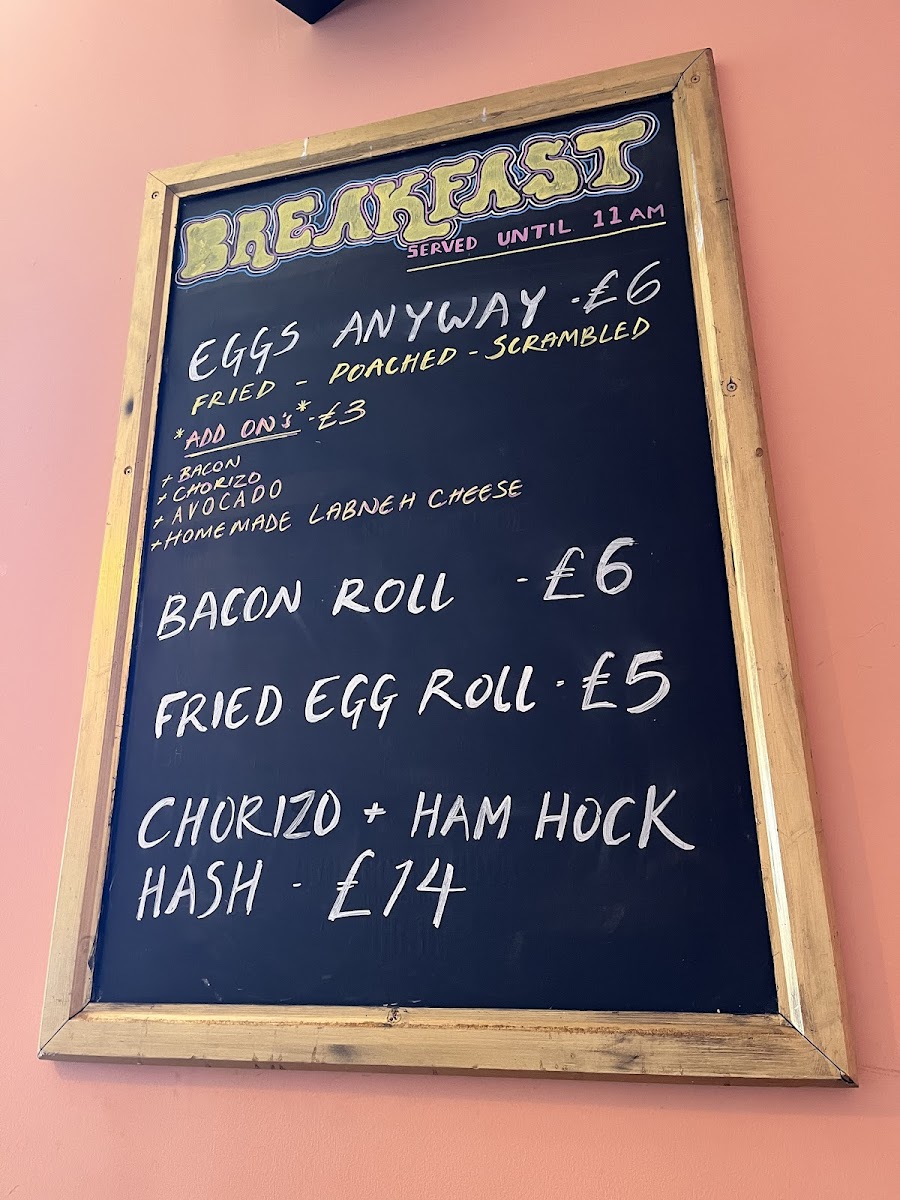 BREAKFAST
SERVED UNTIL 11AM
EGGS ANYWAY - £6
FRIED - POACHED - SCRAMBLED
*ADD ON'S* - £3
+ BACON
+ CHORIZO
+ AVOCADO
+ HOMEMADE LABNEH CHEESE
BACON ROLL - £6
FRIED EGG ROLL - £5
CHORIZO + HAM HOCK
HASH - £14